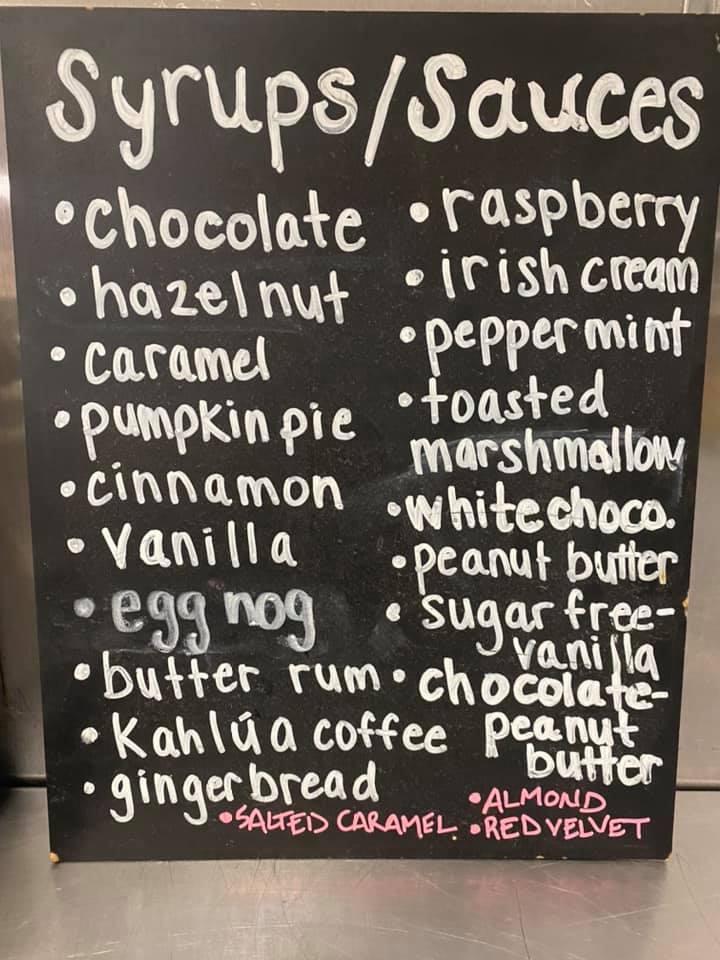 Syrups/Sauces
• chocolate
• hazelnut
• caramel
• pumpkin pie
• cinnamon
• vanilla
• egg nog
• butter rum
• Kahlúa coffee
• gingerbread
• SALTED CARAMEL
• raspberry
• irish cream
• peppermint
• toasted
marshmallow
• white choco.
• peanut butter
• sugar free-
vanilla
• chocolate-
peanut
butter
• ALMOND
• RED VELVET